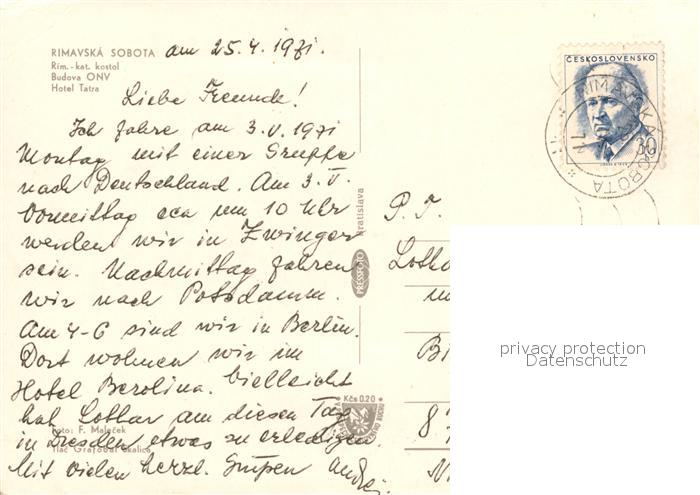 RIMAVSKÁ SOBOTA am 25.4.1971.
Rím.-kat. kostol
Budova ONV
Hotel Tatra
Liebe Freunde!
Ich fahre am 3.V.1971
Montag mit einer Gruppe
nach Deutschland. Am 3.V.
Vormittag cca um 10 Uhr
werden wir in Zwinger
sein. Nachmittag fahren
wir nach Potsdamm.
Am 4-6 sind wir in Berlin.
Dort wohnen wir im
Hotel Berolina. Vielleicht
hat Lothar am diesen Tag
in Dresden etwas zu erledigen.
Mit vielen herzl. Grüßen
Foto: F. Maleček
Tlač Grafobal Skalica
PRESSFOTO Bratislava
Kčs 0.20
ČESKOSLOVENSKO
30
RIMAVSKÁ SOBOTA
P. T.
Lotha
Bi
8
privacy protection
Datenschutz